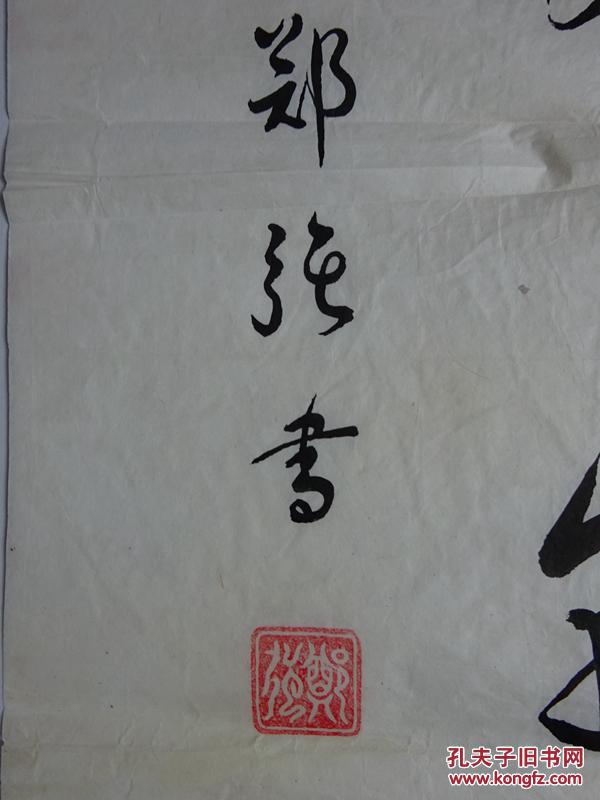 郑强書
鄭強
孔夫子旧书网
www.kongfz.com